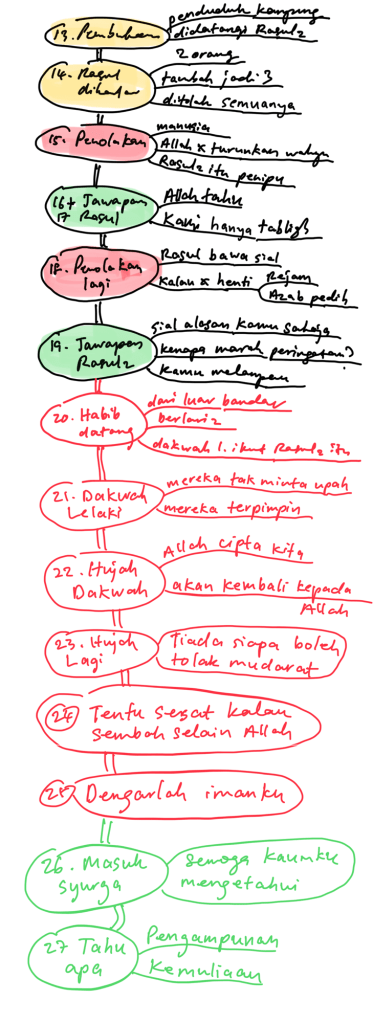 13. Pembukaan
penduduk kampung
didatangi Rasul2
14. Rasul
dihantar
2 orang
tambah jadi 3
ditolak semuanya
15. Penolakan
manusia
Allah x turunkan wahyu
Rasul2 itu penipu
16+ Jawapan
17 Rasul
Allah tahu
Kami hanya tabligh
18. Penolakan
lagi
Rasul bawa sial
kalau x henti
Rejam
Azab pedih
19. Jawapan
Rasul2
sial alasan kamu sahaja
kenapa marah peringatan?
kamu melampau
20. Habib
datang
dari luar bandar
berlari2
dakwah 1. ikut Rasul2 itu
21. Dakwah
Lelaki
mereka tak minta upah
mereka terpimpin
22. Hujah
Dakwah
Allah cipta kita
akan kembali kepada
Allah
23. Hujah
Lagi
Tiada siapa boleh
tolak mudarat
24 Tentu sesat kalau
sembah selain Allah
25 Dengarlah imanku
26. Masuk
syurga
semoga kaumku
mengetahui
27 Tahu
apa
Pengampunan
Kemuliaan